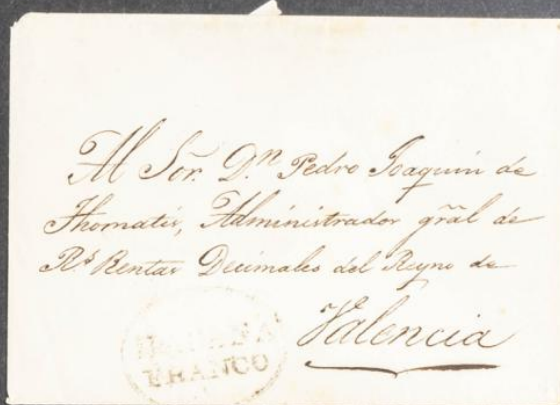 Al Sor. Dn. Pedro Joaquin de
Thomatis, Administrador gral de
Rs. Rentas Decimales del Reyno de
Valencia
FRANCO